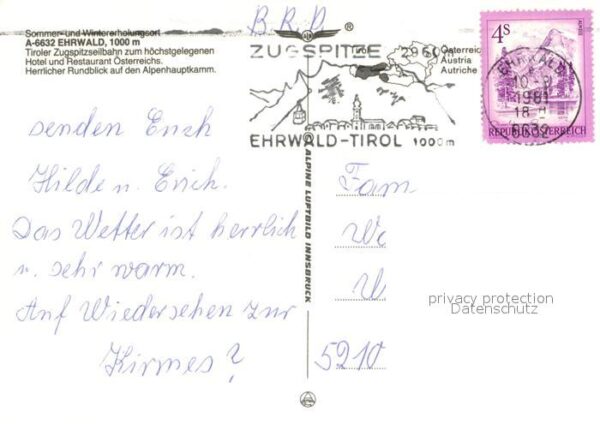 B. R. D
Sommer- und Wintererholungsort
A-6632 EHRWALD, 1000 m
Tiroler Zugspitzseilbahn zum höchstgelegenen
Hotel und Restaurant Österreichs.
Herrlicher Rundblick auf den Alpenhauptkamm.
ZUGSPITZE 2960m
EHRWALD-TIROL 1000m
Österreich
Austria
Autriche
4S
REPUBLIK ÖSTERREICH
EHRWALD
1981
18
6632
ALPINE LUFTBILD INNSBRUCK
senden Euch
Hilde u. Erich.
Das Wetter ist herrlich
u. sehr warm.
Auf Wiedersehen zur
Kirmes?
Fam
5210
privacy protection
Datenschutz